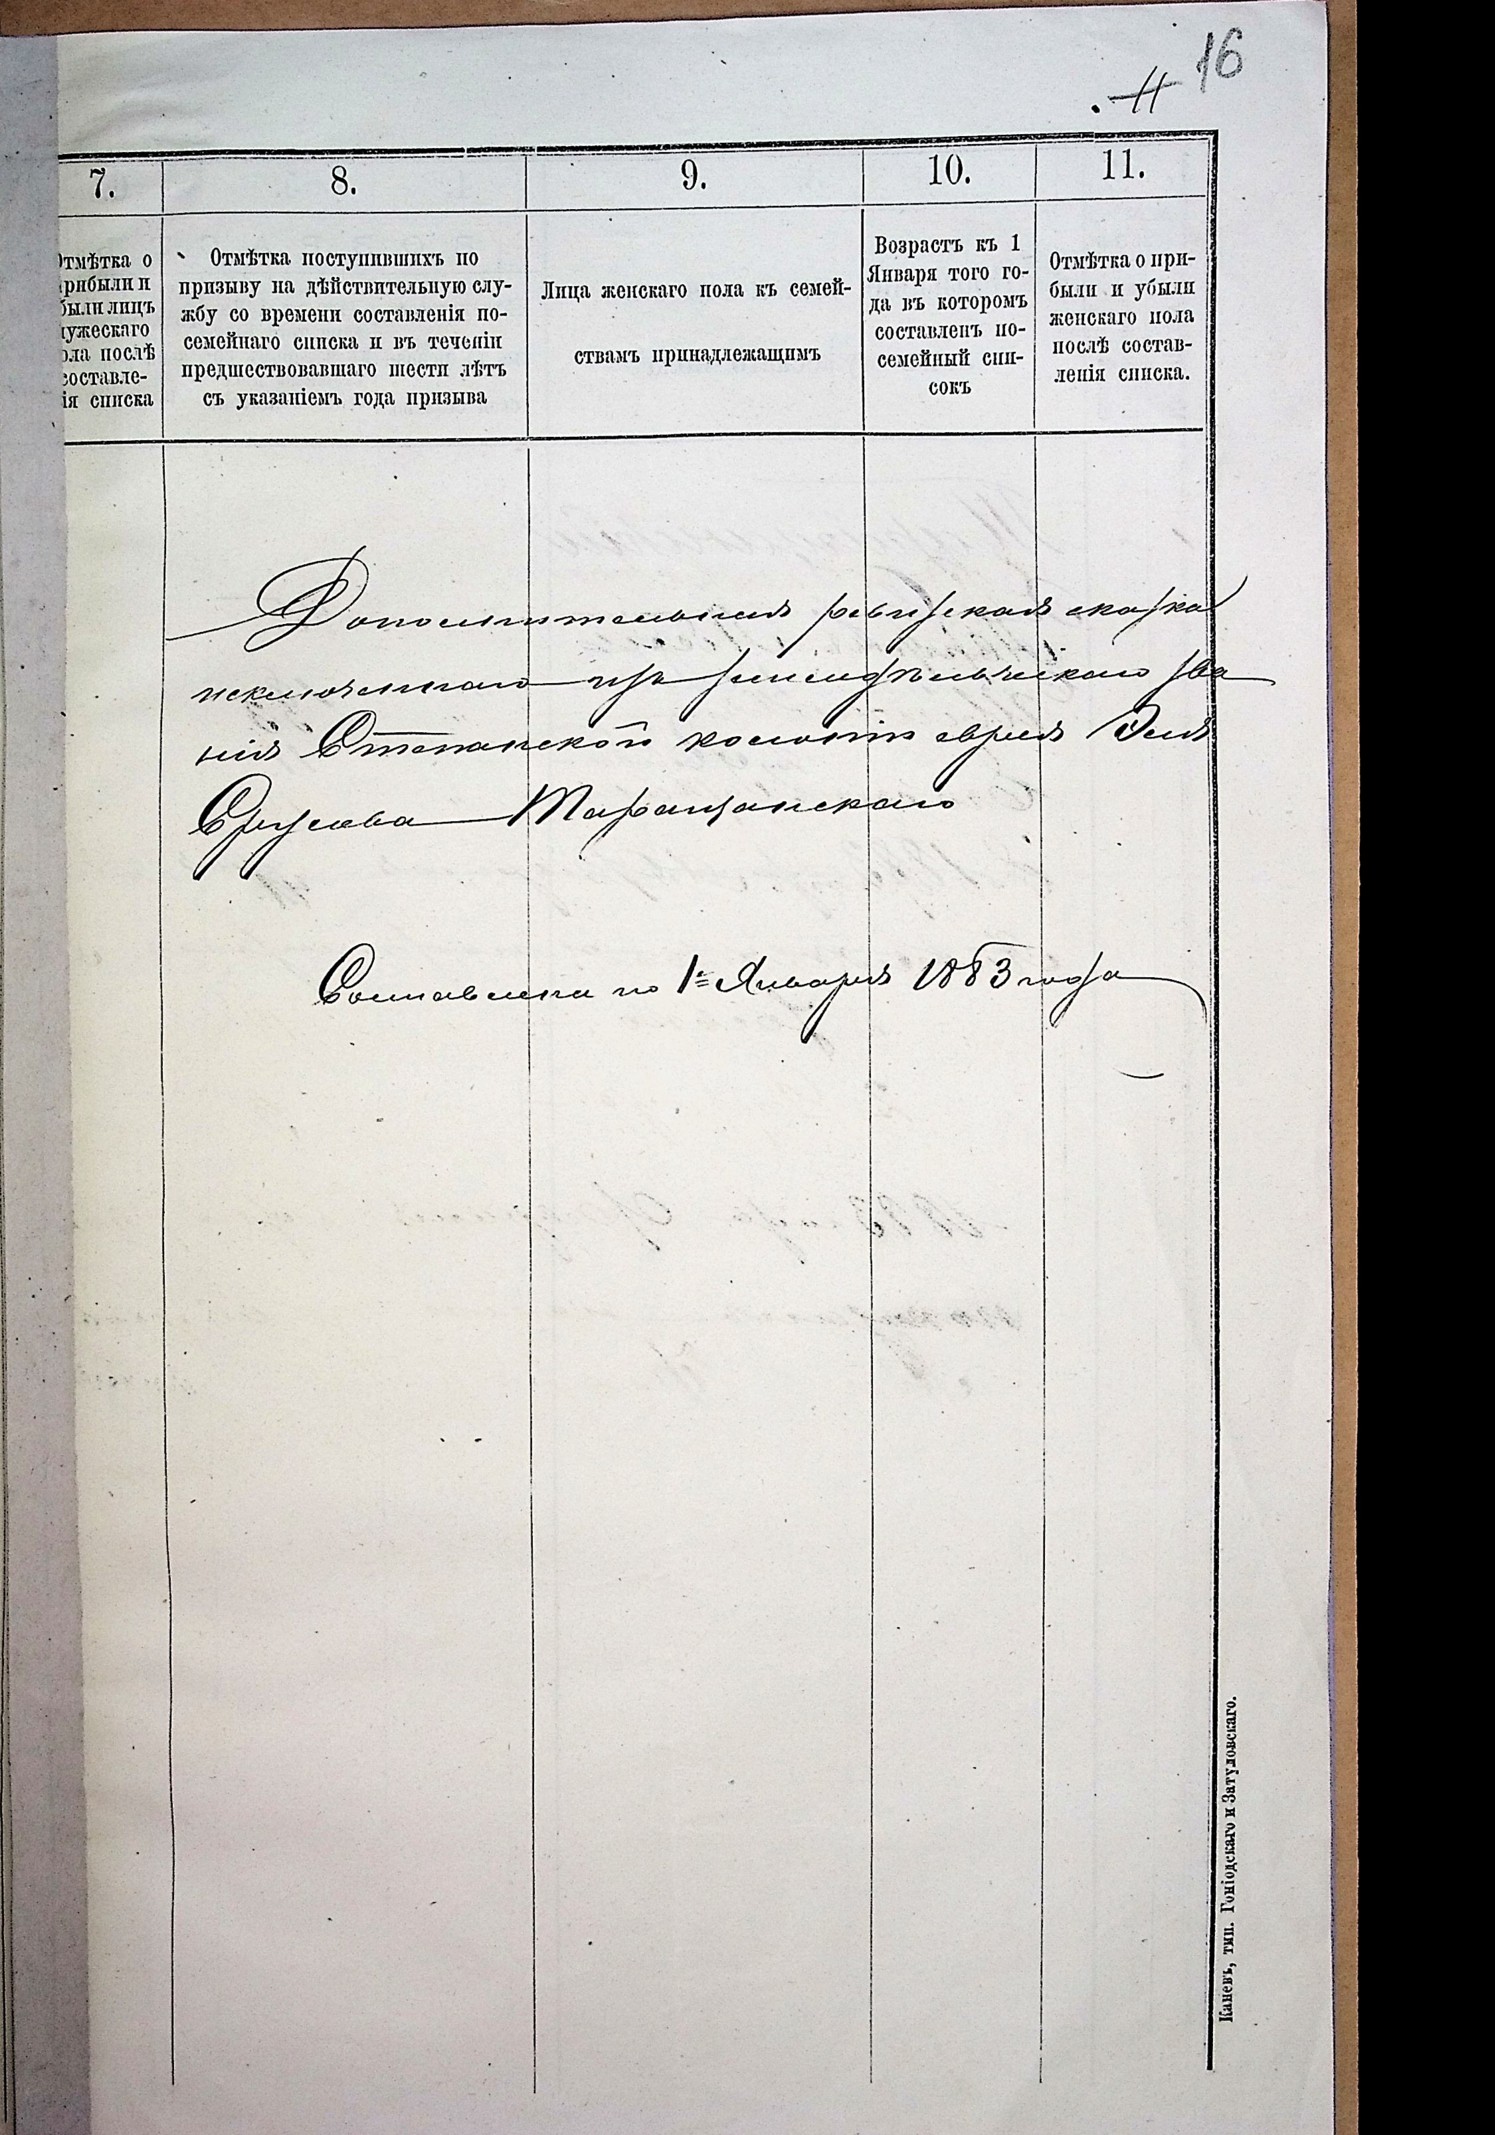 16
11
7. 8. 9. 10. 11.
Отмѣтка о
прибыли и
были лицъ
мужескаго
пола послѣ
составле-
нія списка
Отмѣтка поступившихъ по
призыву на дѣйствительную слу-
жбу со времени составленія по-
семейнаго списка и въ теченіи
предшествовавшаго шести лѣтъ
съ указаніемъ года призыва
Лица женскаго пола къ семей-
ствамъ принадлежащимъ
Возрастъ къ 1
Января того го-
да въ которомъ
составленъ по-
семейный спи-
сокъ
Отмѣтка о при-
были и убыли
женскаго пола
послѣ состав-
ленія списка.
Дополнительная ревизская сказка
исключеннаго изъ земледѣльческаго зва
нія Степанской колоніи еврея Эля
Срулева Таращанскаго
Составлена по 1е Января 1883 года
Каневъ, тип. Гоніодскаго и Затуловскаго.